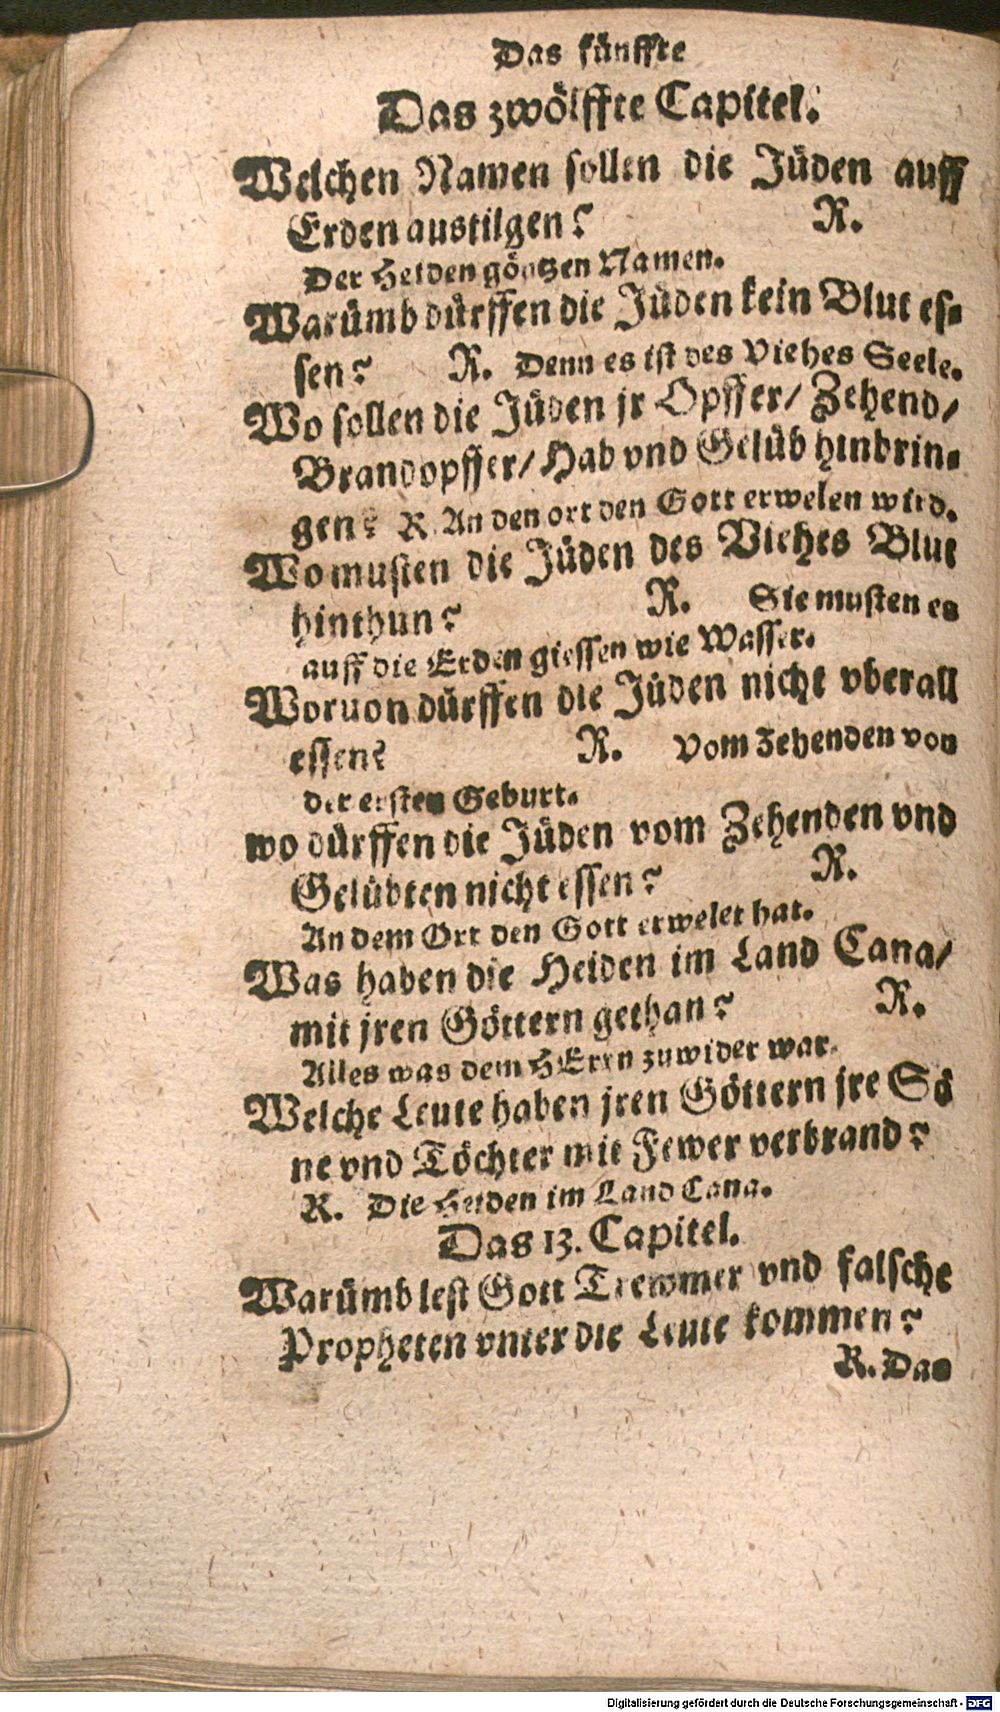 Das fünffte
Das zwölffte Capitel.
Welchen Namen sollen die Jüden auff
Erden austilgen? R.
Der Heiden götzen Namen.
Warümb dürffen die Jüden kein Blut es-
sen? R. Denn es ist des Viehes Seele.
Wo sollen die Jüden jr Opffer/ Zehend/
Brandopffer/ Hab vnd Gelüb hinbrin-
gen? R. An den ort den Gott erwelen wird.
Wo musten die Jüden des Viehes Blut
hinthun? R. Sie musten es
auff die Erden giessen wie Wasser.
Woruon dürffen die Jüden nicht vberall
essen? R. Vom Zehenden von
der ersten Geburt.
wo dürffen die Jüden vom Zehenden vnd
Gelübten nicht essen? R.
An dem Ort den Gott erwelet hat.
Was haben die Heiden im Land Cana/
mit jren Göttern gethan? R.
Alles was dem HErrn zuwider war.
Welche Leute haben jren Göttern jre Sö
ne vnd Töchter mit Fewer verbrand?
R. Die Heiden im Land Cana.
Das 13. Capitel.
Warümb lest Gott Trewmer vnd falsche
Propheten vnter die Leute kommen?
R. Das
Digitalisierung gefördert durch die Deutsche Forschungsgemeinschaft - DFG